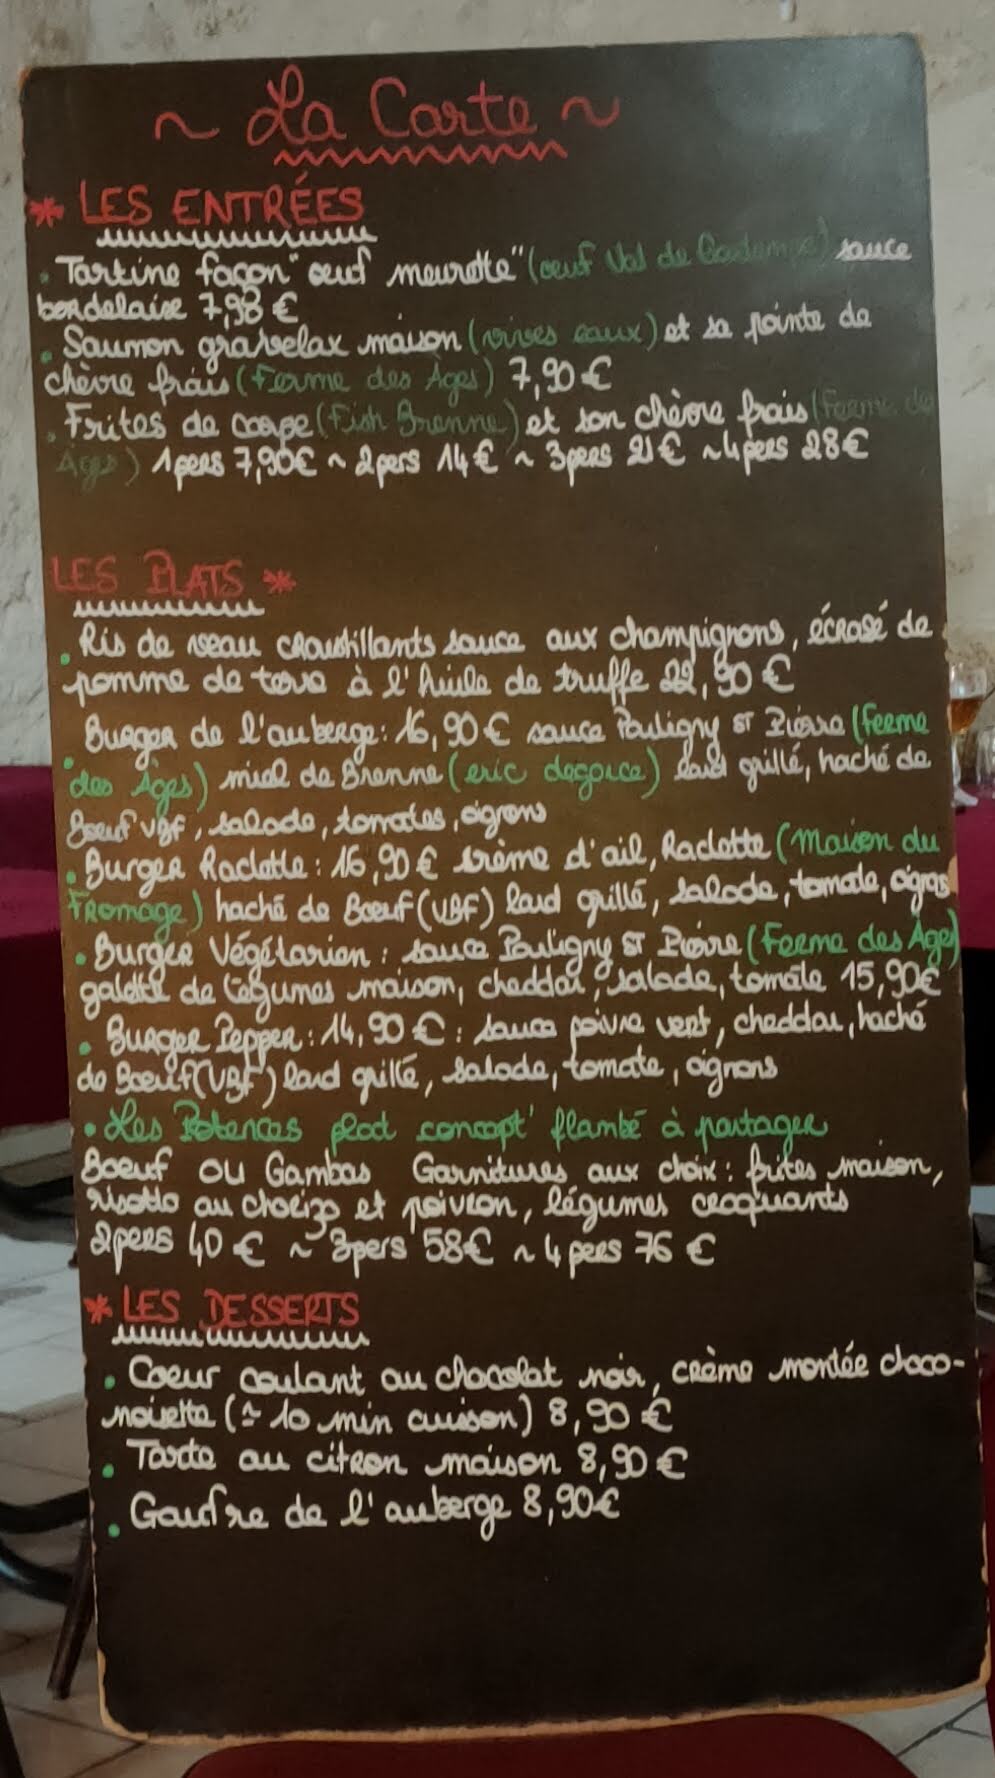 ~ La Carte ~
* LES ENTRÉES
• Tartine façon "œuf meurette" (œuf Val de Gartempe) sauce
bordelaise 7,98 €
• Saumon gravelax maison (vives eaux) et sa pointe de
chèvre frais (Ferme des Âges) 7,90 €
• Frites de carpe (Fish Brenne) et son chèvre frais (Ferme des
Âges) 1 pers 7,90€ ~ 2 pers 14 € ~ 3 pers 21 € ~ 4 pers 28 €
LES PLATS *
• Ris de veau croustillants sauce aux champignons, écrasé de
pomme de terre à l'huile de truffe 22,90 €
• Burger de l'auberge: 16,90 € sauce Pouligny ST Pierre (Ferme
des Âges) miel de Brenne (eric degorce) lard grillé, haché de
Boeuf VBF, salade, tomates, oignons
• Burger Raclette : 16,90 € crème d'ail, Raclette (Maison du
Fromage) haché de Boeuf (VBF) lard grillé, salade, tomate, oignons
• Burger Végétarien : sauce Pouligny ST Pierre (Ferme des Âges)
galette de légumes maison, cheddar, salade, tomate 15,90€
• Burger Pepper : 14,90 € : sauce poivre vert, cheddar, haché
de Boeuf (VBF) lard grillé, salade, tomate, oignons
• Les Potences plat concept' flambé à partager
Boeuf OU Gambas Garnitures aux choix : frites maison,
risotto au chorizo et poivron, légumes croquants
2 pers 40 € ~ 3 pers 58€ ~ 4 pers 76 €
* LES DESSERTS
• Coeur coulant au chocolat noir, crème montée choco-
noisette (≃ 10 min cuisson) 8,90 €
• Tarte au citron maison 8,90 €
• Gaufre de l'auberge 8,90€